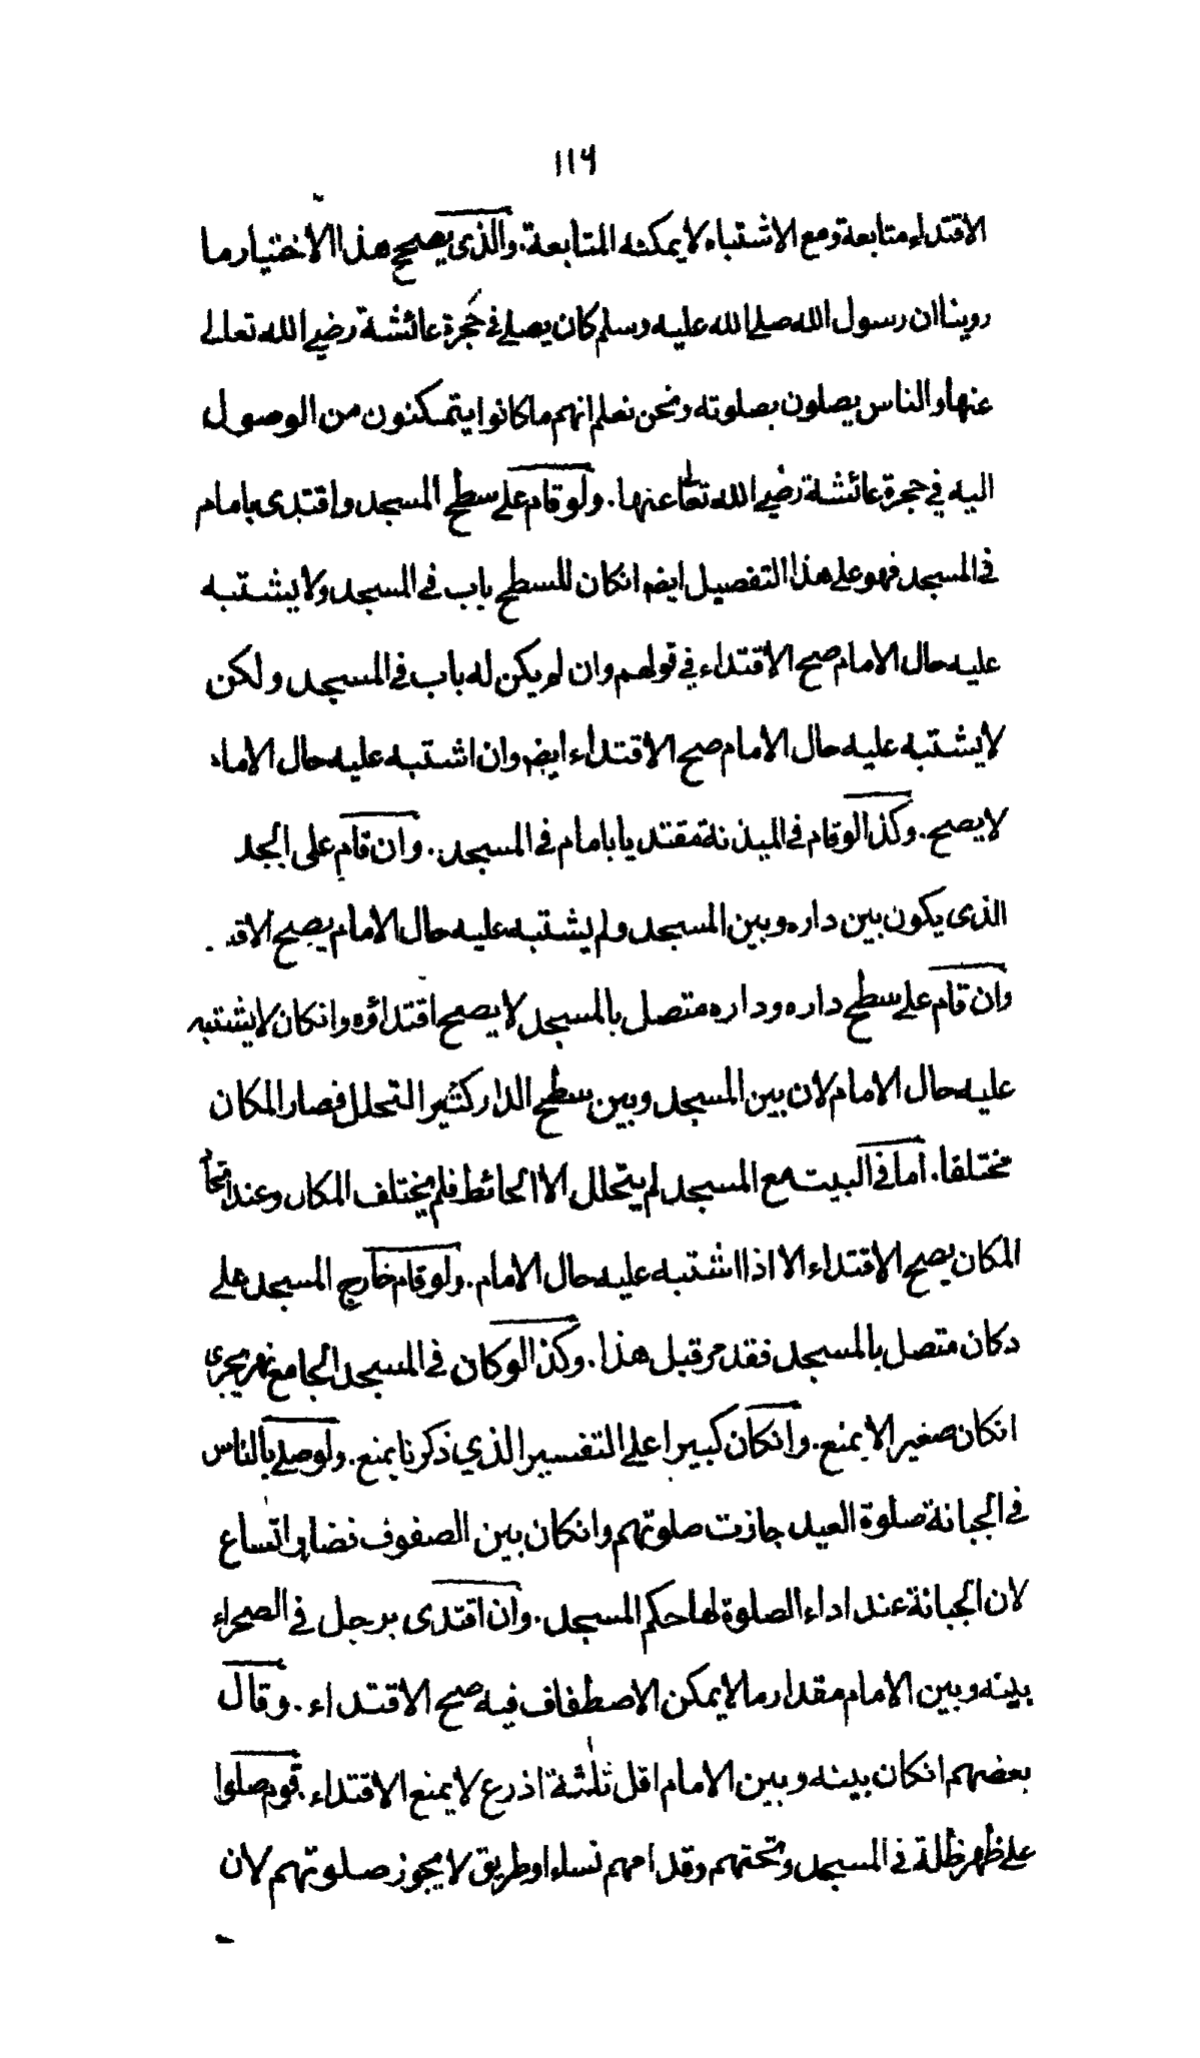 ١١٦
الاقتداء متابعة ومع الاشتباه لا يمكنه المتابعة. والذى يصحح هذا الاختيار ما
روينا ان رسول الله صلى الله عليه وسلم كان يصلى فى حجرة عائشة رضي الله تعالى
عنها والناس يصلون بصلوته ونحن نعلم انهم ما كانوا يتمكنون من الوصول
اليه في حجرة عائشة رضي الله تعالى عنها. ولو قام على سطح المسجد واقتدى بامام
فى المسجد فهو على هذا التفصيل ايضا انكان للسطح باب فى المسجد ولا يشتبه
عليه حال الامام صح الاقتداء في قولهم وان لم يكن له باب فى المسجد ولكن
لا يشتبه عليه حال الامام صح الاقتداء ايضا وان اشتبه عليه حال الامام
لا يصح. وكذا لو قام فى الميذنة مقتديا بامام فى المسجد. وان قام على الجد
الذى يكون بين داره وبين المسجد ولم يشتبه عليه حال الامام يصح الاقتد
وان قام على سطح داره وداره متصل بالمسجد لا يصح اقتداؤه وانكان لا يشتبه
عليه حال الامام لان بين المسجد وبين سطح الدار كثير التخلل فصار المكان
مختلفا. اما فى البيت مع المسجد لم يتخلل الا الحائط فلم يختلف المكان وعند اتحاد
المكان يصح الاقتداء الا اذا اشتبه عليه حال الامام. ولو قام خارج المسجد على
دكان متصل بالمسجد فقد مر قبل هذا. وكذا لو كان فى المسجد الجامع نهر يجرى
انكان صغيرا لا يمنع. وانكان كبيرا على التفسير الذي ذكرنا يمنع. ولو صلى بالناس
فى الجبانة صلوة العيد جازت صلوتهم وانكان بين الصفوف فضاء او اتساع
لان الجبانة عند اداء الصلوة لها حكم المسجد. وان اقتدى برجل فى الصحراء
بينه وبين الامام مقدار ما لا يمكن الاصطفاف فيه صح الاقتداء. وقال
بعضهم انكان بينه وبين الامام اقل ثلثة اذرع لا يمنع الاقتداء. قوم صلوا
على ظهر ظلة فى المسجد وتحتهم وقدامهم نساء او طريق لا يجوز صلوتهم لان